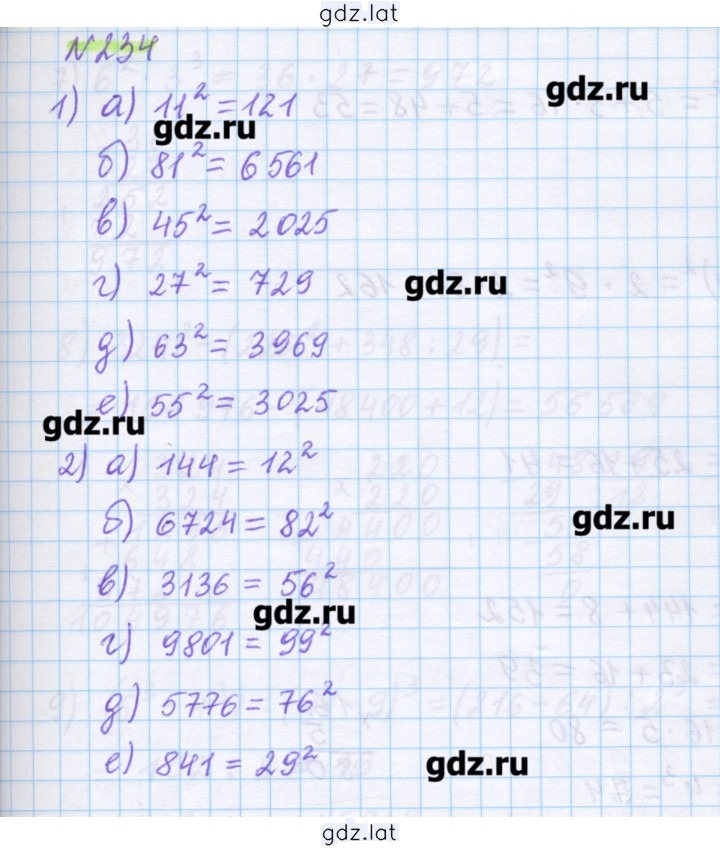 gdz.lat
№234
1) а) 11² = 121
gdz.ru
gdz.ru
б) 81² = 6561
в) 45² = 2025
г) 27² = 729
gdz.ru
д) 63² = 3969
е) 55² = 3025
gdz.ru
2) а) 144 = 12²
б) 6724 = 82²
gdz.ru
в) 3136 = 56²
gdz.ru
г) 9801 = 99²
д) 5776 = 76²
е) 841 = 29²
gdz.ru
gdz.lat